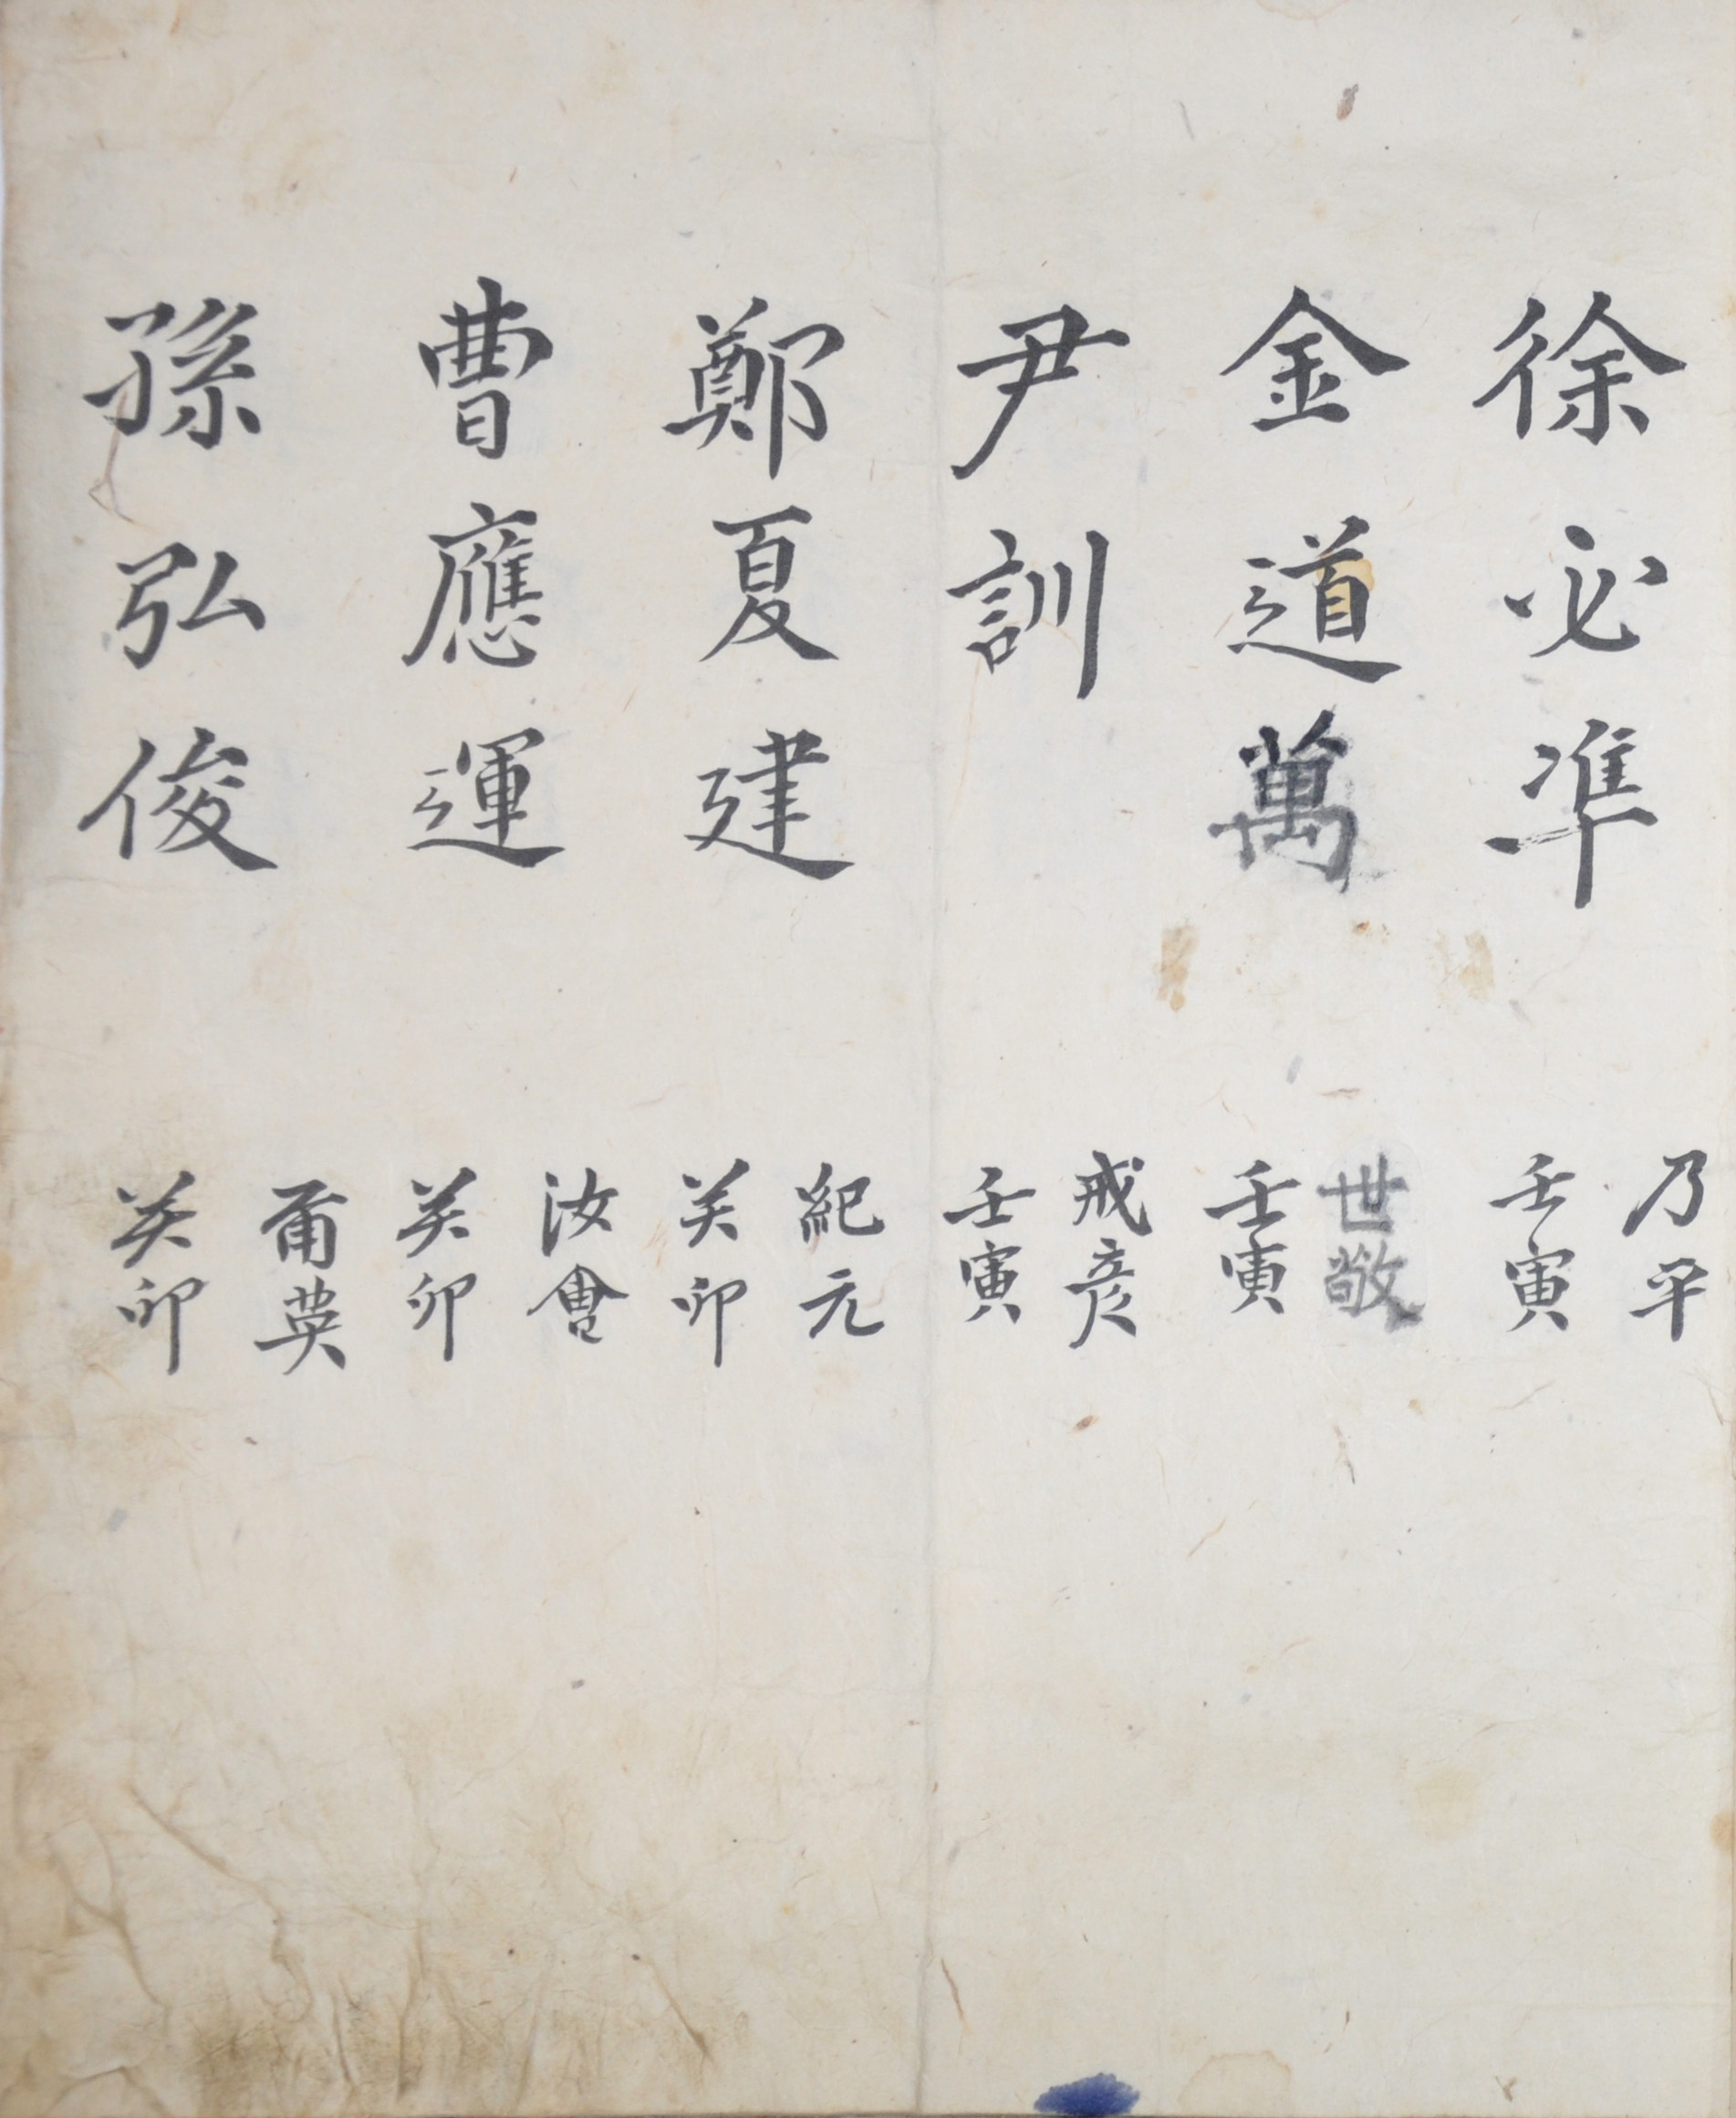 徐必準
乃平
壬寅
金道萬
世敬
壬寅
尹訓
戒彦
壬寅
鄭夏建
紀元
癸卯
曺應運
汝會
癸卯
孫弘俊
甭英
癸卯